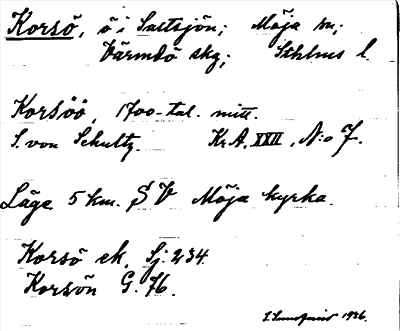 Korsö, ö i Saltsjön; Möja sn;
Värmdö skg; Sthlms l.
Korsöö, 1700-tal. mitt.
S. von Schultz. Kr.A. XXII, N:o 7.
Läge 5 km. SV Möja kyrka.
Korsö ek. Sj. 234.
Korsön G. 76.
1936.